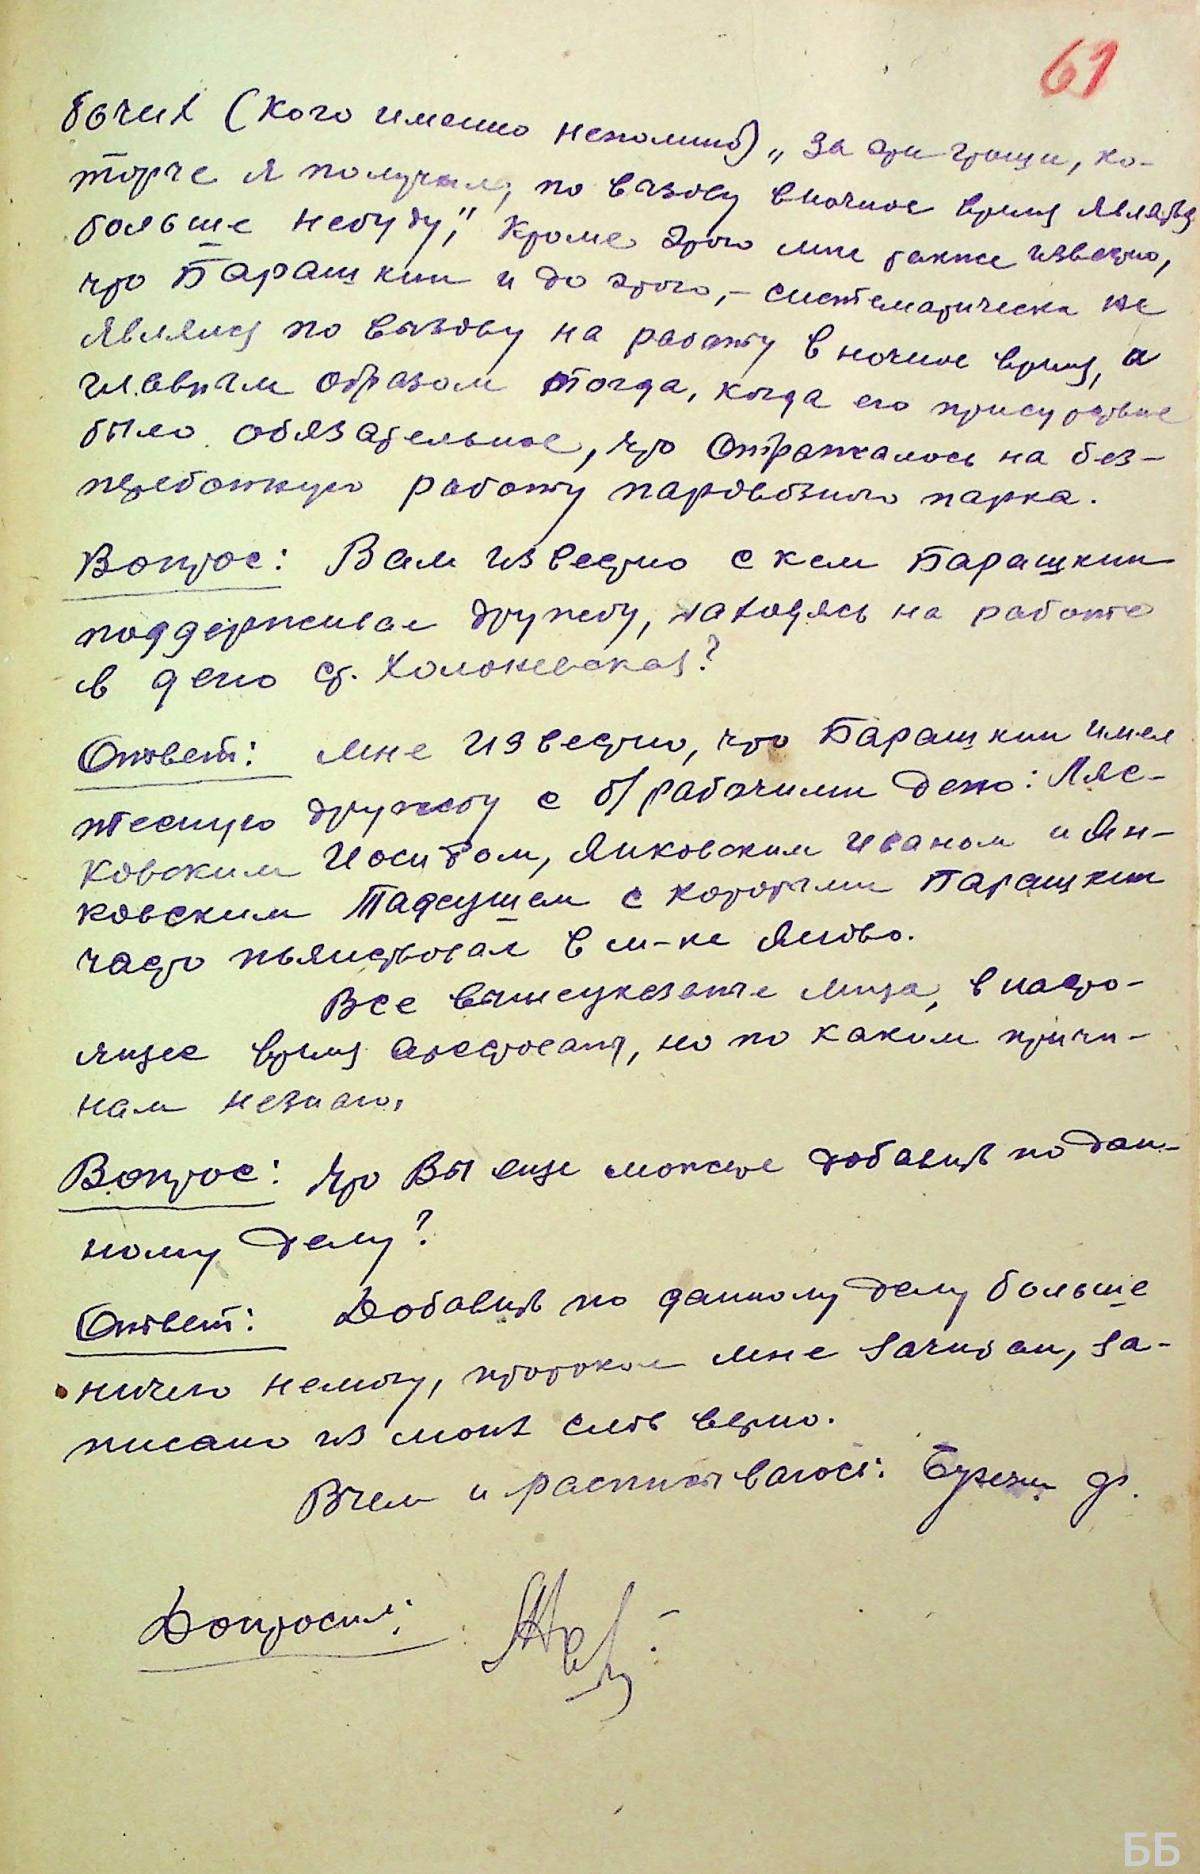 61
бочих (кого именно непомню) „За эти гроши, ко-
торые я получаю, по вызову в ночное время являтся
больше небуду", Кроме этого мне также известно,
что Паращкин и до этого, – систематически не
являлся по вызову на работу в ночное время, а
главным образом тогда, когда его присутствие
было обязательное, что отражалось на без-
перебойную работу паровозного парка.
Вопрос: Вам известно с кем Паращкин
поддерживал дружбу, находясь на работе
в депо ст. Холоневская?
Ответ: Мне известно, что Паращкин имел
тесную дружбу с б/рабочими депо: Ляс-
ковским Иосифом, Янковским Иваном и Ян-
ковским Тадеушем с которыми Паращкин
часто пьянствовал в м-ке Яново.
Все вышеуказаные лица, в насто-
ящее время арестованы, но по каким причи-
нам незнаю.
Вопрос: Что Вы еще можете добавить по дан-
ному делу?
Ответ: Добавить по данному делу больше
ничего немогу, протокол мне зачитан, за-
писано из моих слов верно.
В чем и расписываюсь:
Допросил:
ББ